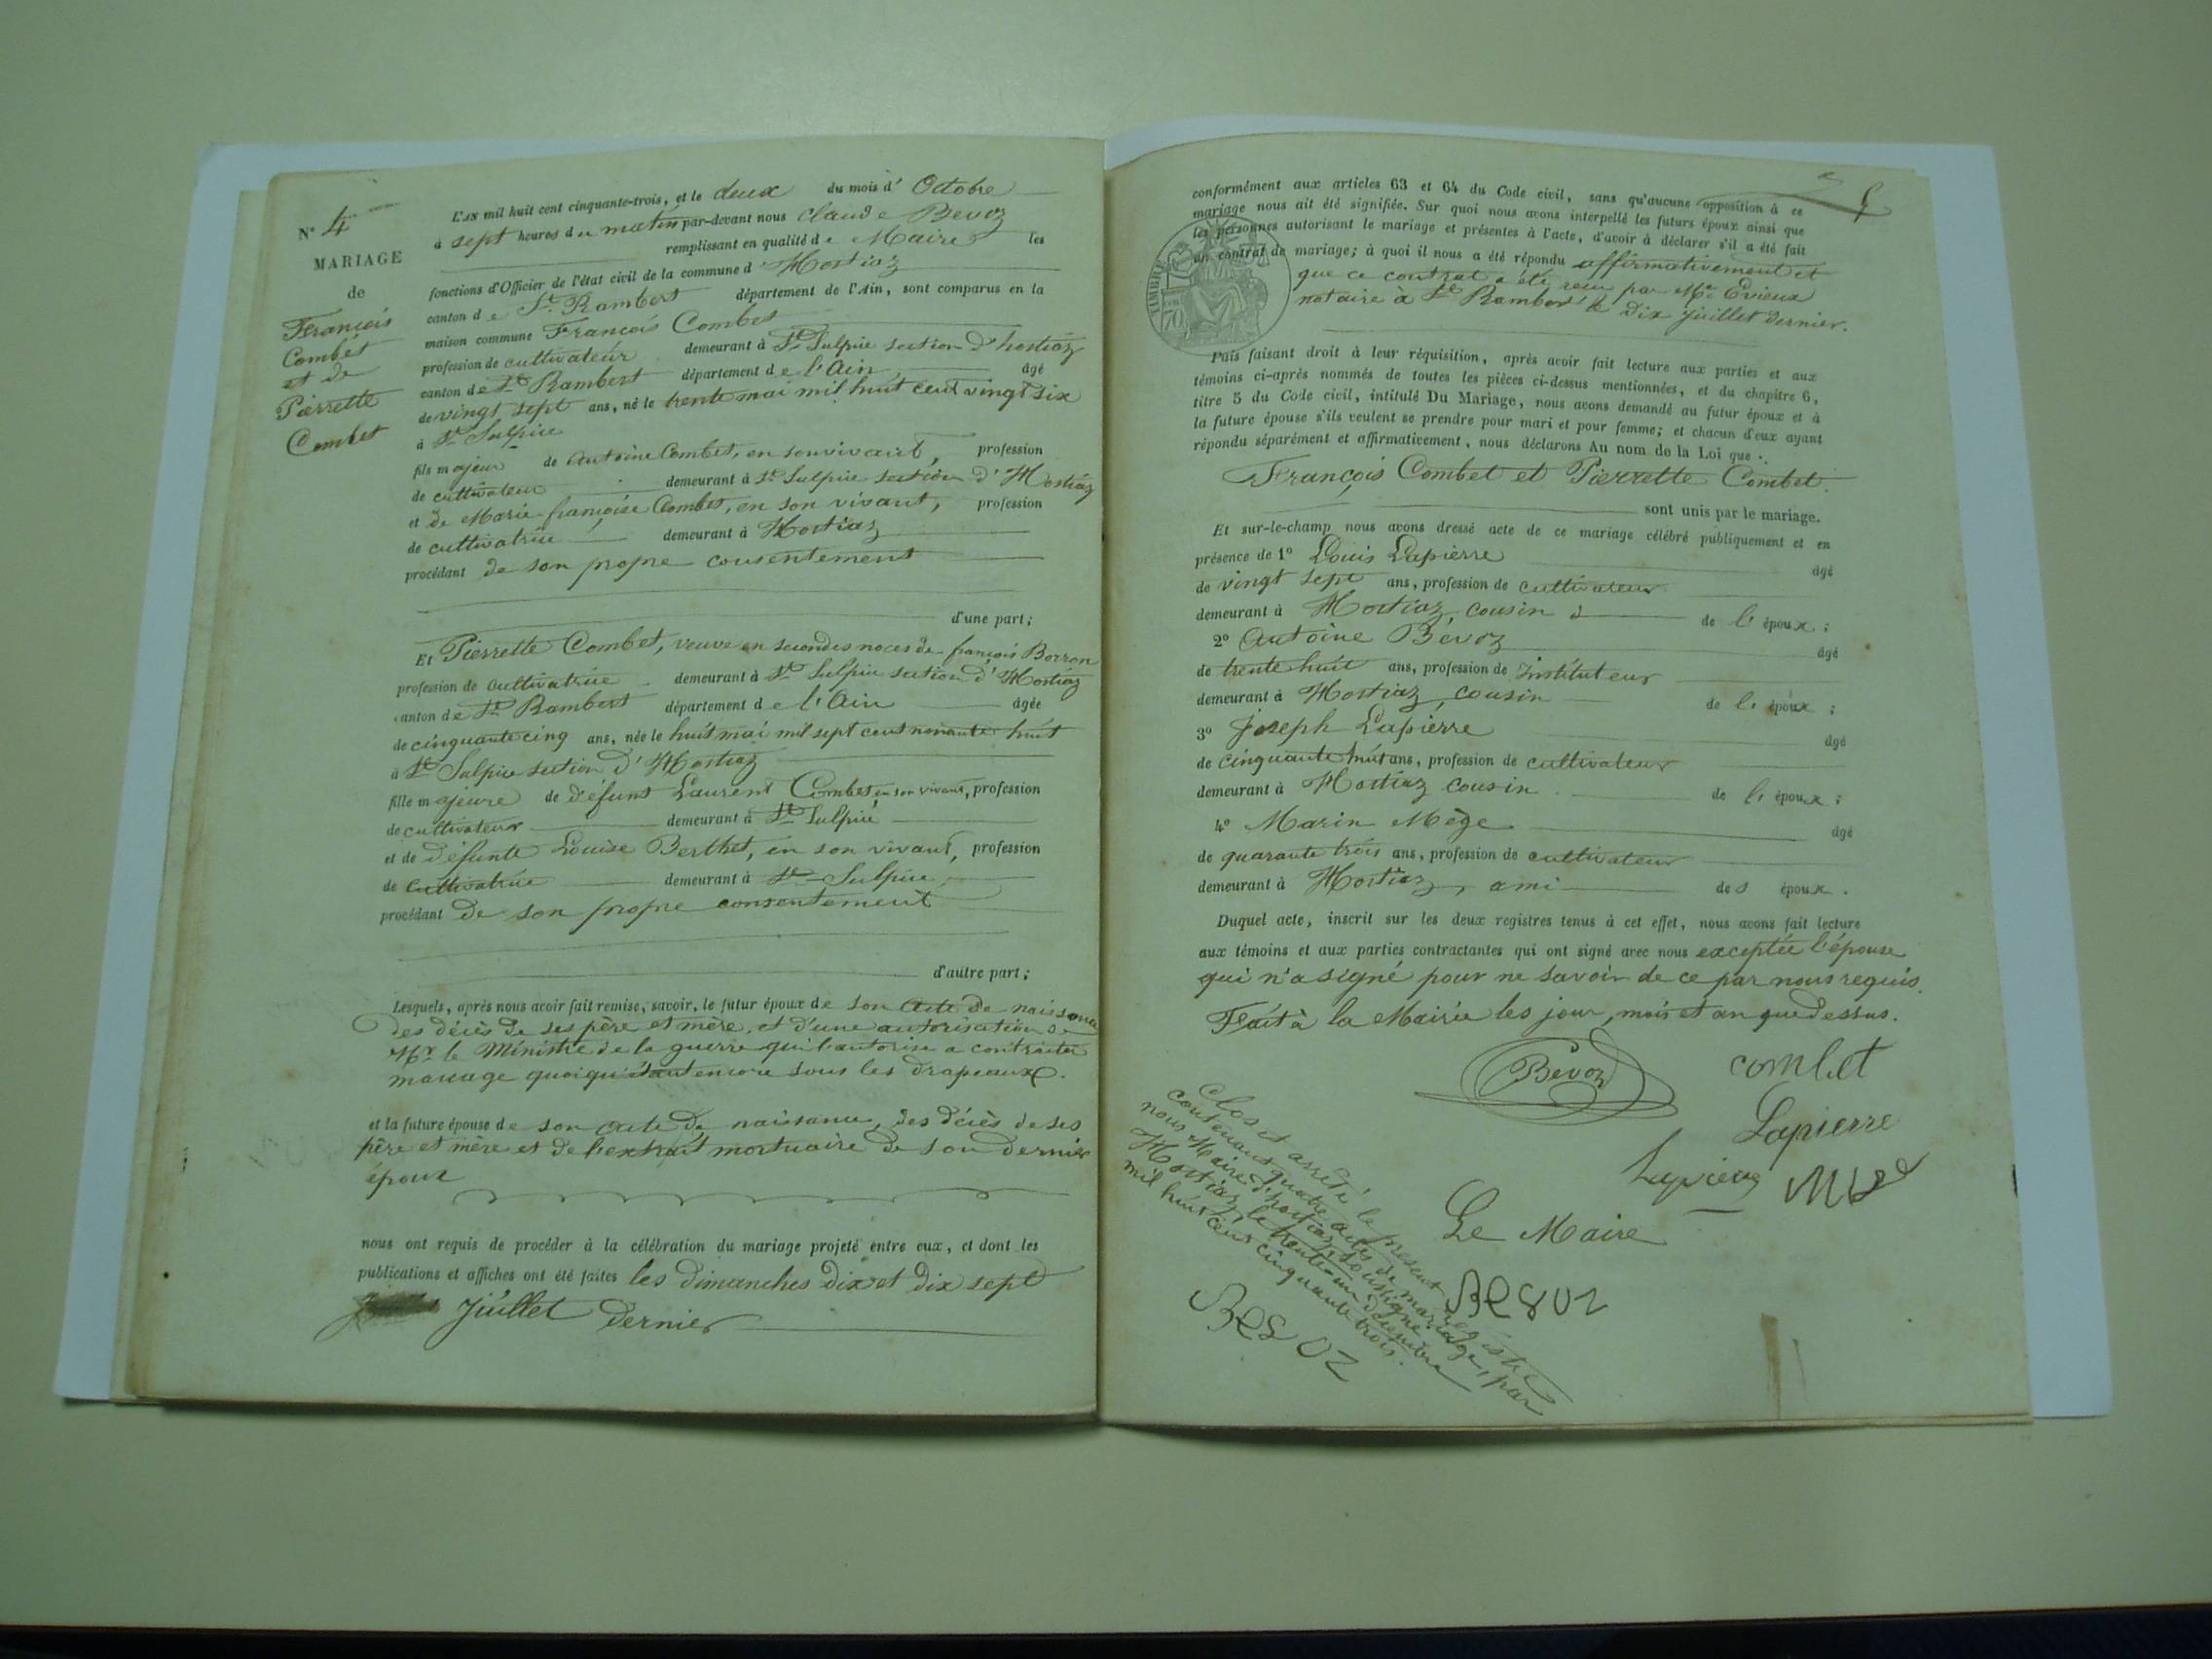 N° 4
MARIAGE
de
François
Combet
et de
Pierrette
Combet
L'AN mil huit cent cinquante-trois, et le deux du mois d' Octobre
à sept heures du matin par-devant nous Claude Bevoz
remplissant en qualité de Maire les
fonctions d'Officier de l'état civil de la commune d' Hostiaz
canton de St. Rambert département de l'Ain, sont comparus en la
maison commune François Combet
profession de cultivateur demeurant à St Sulpice section d'hostiaz
canton de St Rambert département de l'Ain âgé
de vingt sept ans, né le trente mai mil huit cent vingt six
à St Sulpice
fils majeur de Antoine Combet, en son vivant, profession
de cultivateur demeurant à St Sulpice section d'Hostiaz
et de Marie françoise Combet, en son vivant, profession
de cultivatrice demeurant à Hostiaz
procédant de son propre consentement
d'une part;
Et Pierrette Combet, veuve en secondes noces de françois Borron
profession de cultivatrice demeurant à St Sulpice section d'Hostiaz
canton de St Rambert département de l'Ain âgée
de cinquante cinq ans, née le huit mai mil sept cent nonante huit
à St Sulpice section d'Hostiaz
fille majeure de défunt Laurent Combet en son vivant, profession
de cultivateur demeurant à St Sulpice
et de défunte Louise Berthet, en son vivant, profession
de cultivatrice demeurant à St Sulpice
procédant de son propre consentement
d'autre part;
Lesquels, après nous avoir fait remise, savoir, le futur époux de son acte de naissance
des décès de ses père et mère, et d'une autorisation de
Mr le Ministre de la guerre qui l'autorise a contracter
mariage quoiqu'étant encore sous les drapeaux.
et la future épouse de son acte de naissance, des décès de ses
père et mère et de l'extrait mortuaire de son dernier
époux
nous ont requis de procéder à la célébration du mariage projeté entre eux, et dont les
publications et affiches ont été faites les dimanches dix et dix sept
Juillet dernier
conformément aux articles 63 et 64 du Code civil, sans qu'aucune opposition à ce
mariage nous ait été signifiée. Sur quoi nous avons interpellé les futurs époux ainsi que
les personnes autorisant le mariage et présentes à l'acte, d'avoir à déclarer s'il a été fait
un contrat de mariage; à quoi il nous a été répondu affirmativement et
que ce contrat a été reçu par Me Evieux
notaire à St Rambert le dix juillet dernier.
TIMBRE
70
Puis faisant droit à leur réquisition, après avoir fait lecture aux parties et aux
témoins ci-après nommés de toutes les pièces ci-dessus mentionnées, et du chapitre 6,
titre 5 du Code civil, intitulé Du Mariage, nous avons demandé au futur époux et à
la future épouse s'ils veulent se prendre pour mari et pour femme; et chacun d'eux ayant
répondu séparément et affirmativement, nous déclarons Au nom de la Loi que
François Combet et Pierrette Combet
sont unis par le mariage.
Et sur-le-champ nous avons dressé acte de ce mariage célébré publiquement et en
présence de 1° Louis Lapierre âgé
de vingt sept ans, profession de cultivateur
demeurant à Hostiaz, cousin de l'époux;
2° Antoine Bévoz âgé
de trente huit ans, profession de Instituteur
demeurant à Hostiaz, cousin de l'époux;
3° Joseph Lapierre âgé
de cinquante huit ans, profession de cultivateur
demeurant à Hostiaz cousin de l'époux;
4° Marin Mège âgé
de quarante trois ans, profession de cultivateur
demeurant à Hostiaz, ami des époux.
Duquel acte, inscrit sur les deux registres tenus à cet effet, nous avons fait lecture
aux témoins et aux parties contractantes qui ont signé avec nous exceptée l'épouse
qui n'a signé pour ne savoir de ce par nous requis.
Fait à la Mairie les jour, mois et an que dessus.
Bévoz
combet
Lapierre
Le Maire
Bevoz
Clos et arrêté le présent registre
contenant quatre actes de mariage, par
nous Maire d'hostiaz soussigné
Hostiaz, le trente-un décembre
mil huit cent cinquante trois.
Bevoz